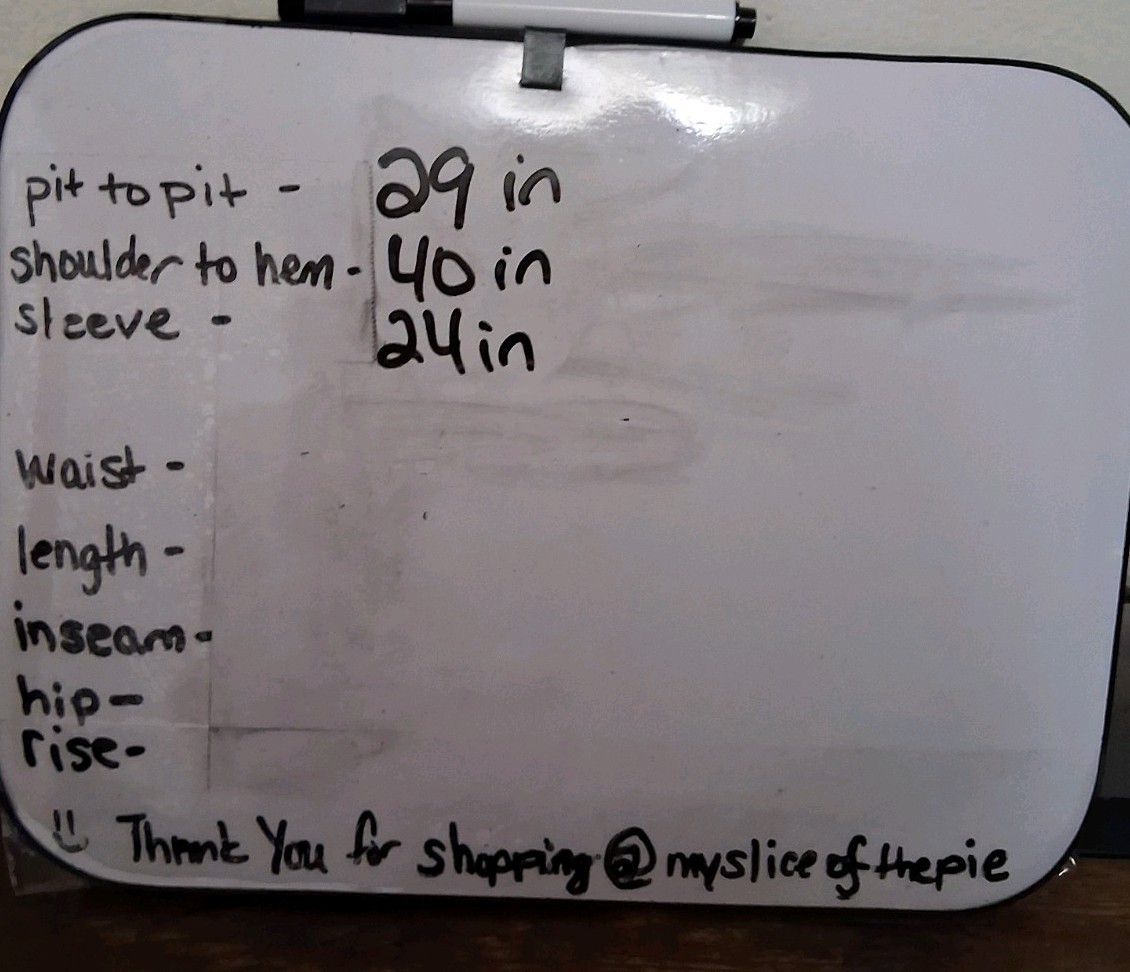 pit to pit - 29 in
shoulder to hem - 40 in
sleeve - 24 in
waist -
length -
inseam -
hip -
rise -
Thank You for shopping @ mysliceofthepie